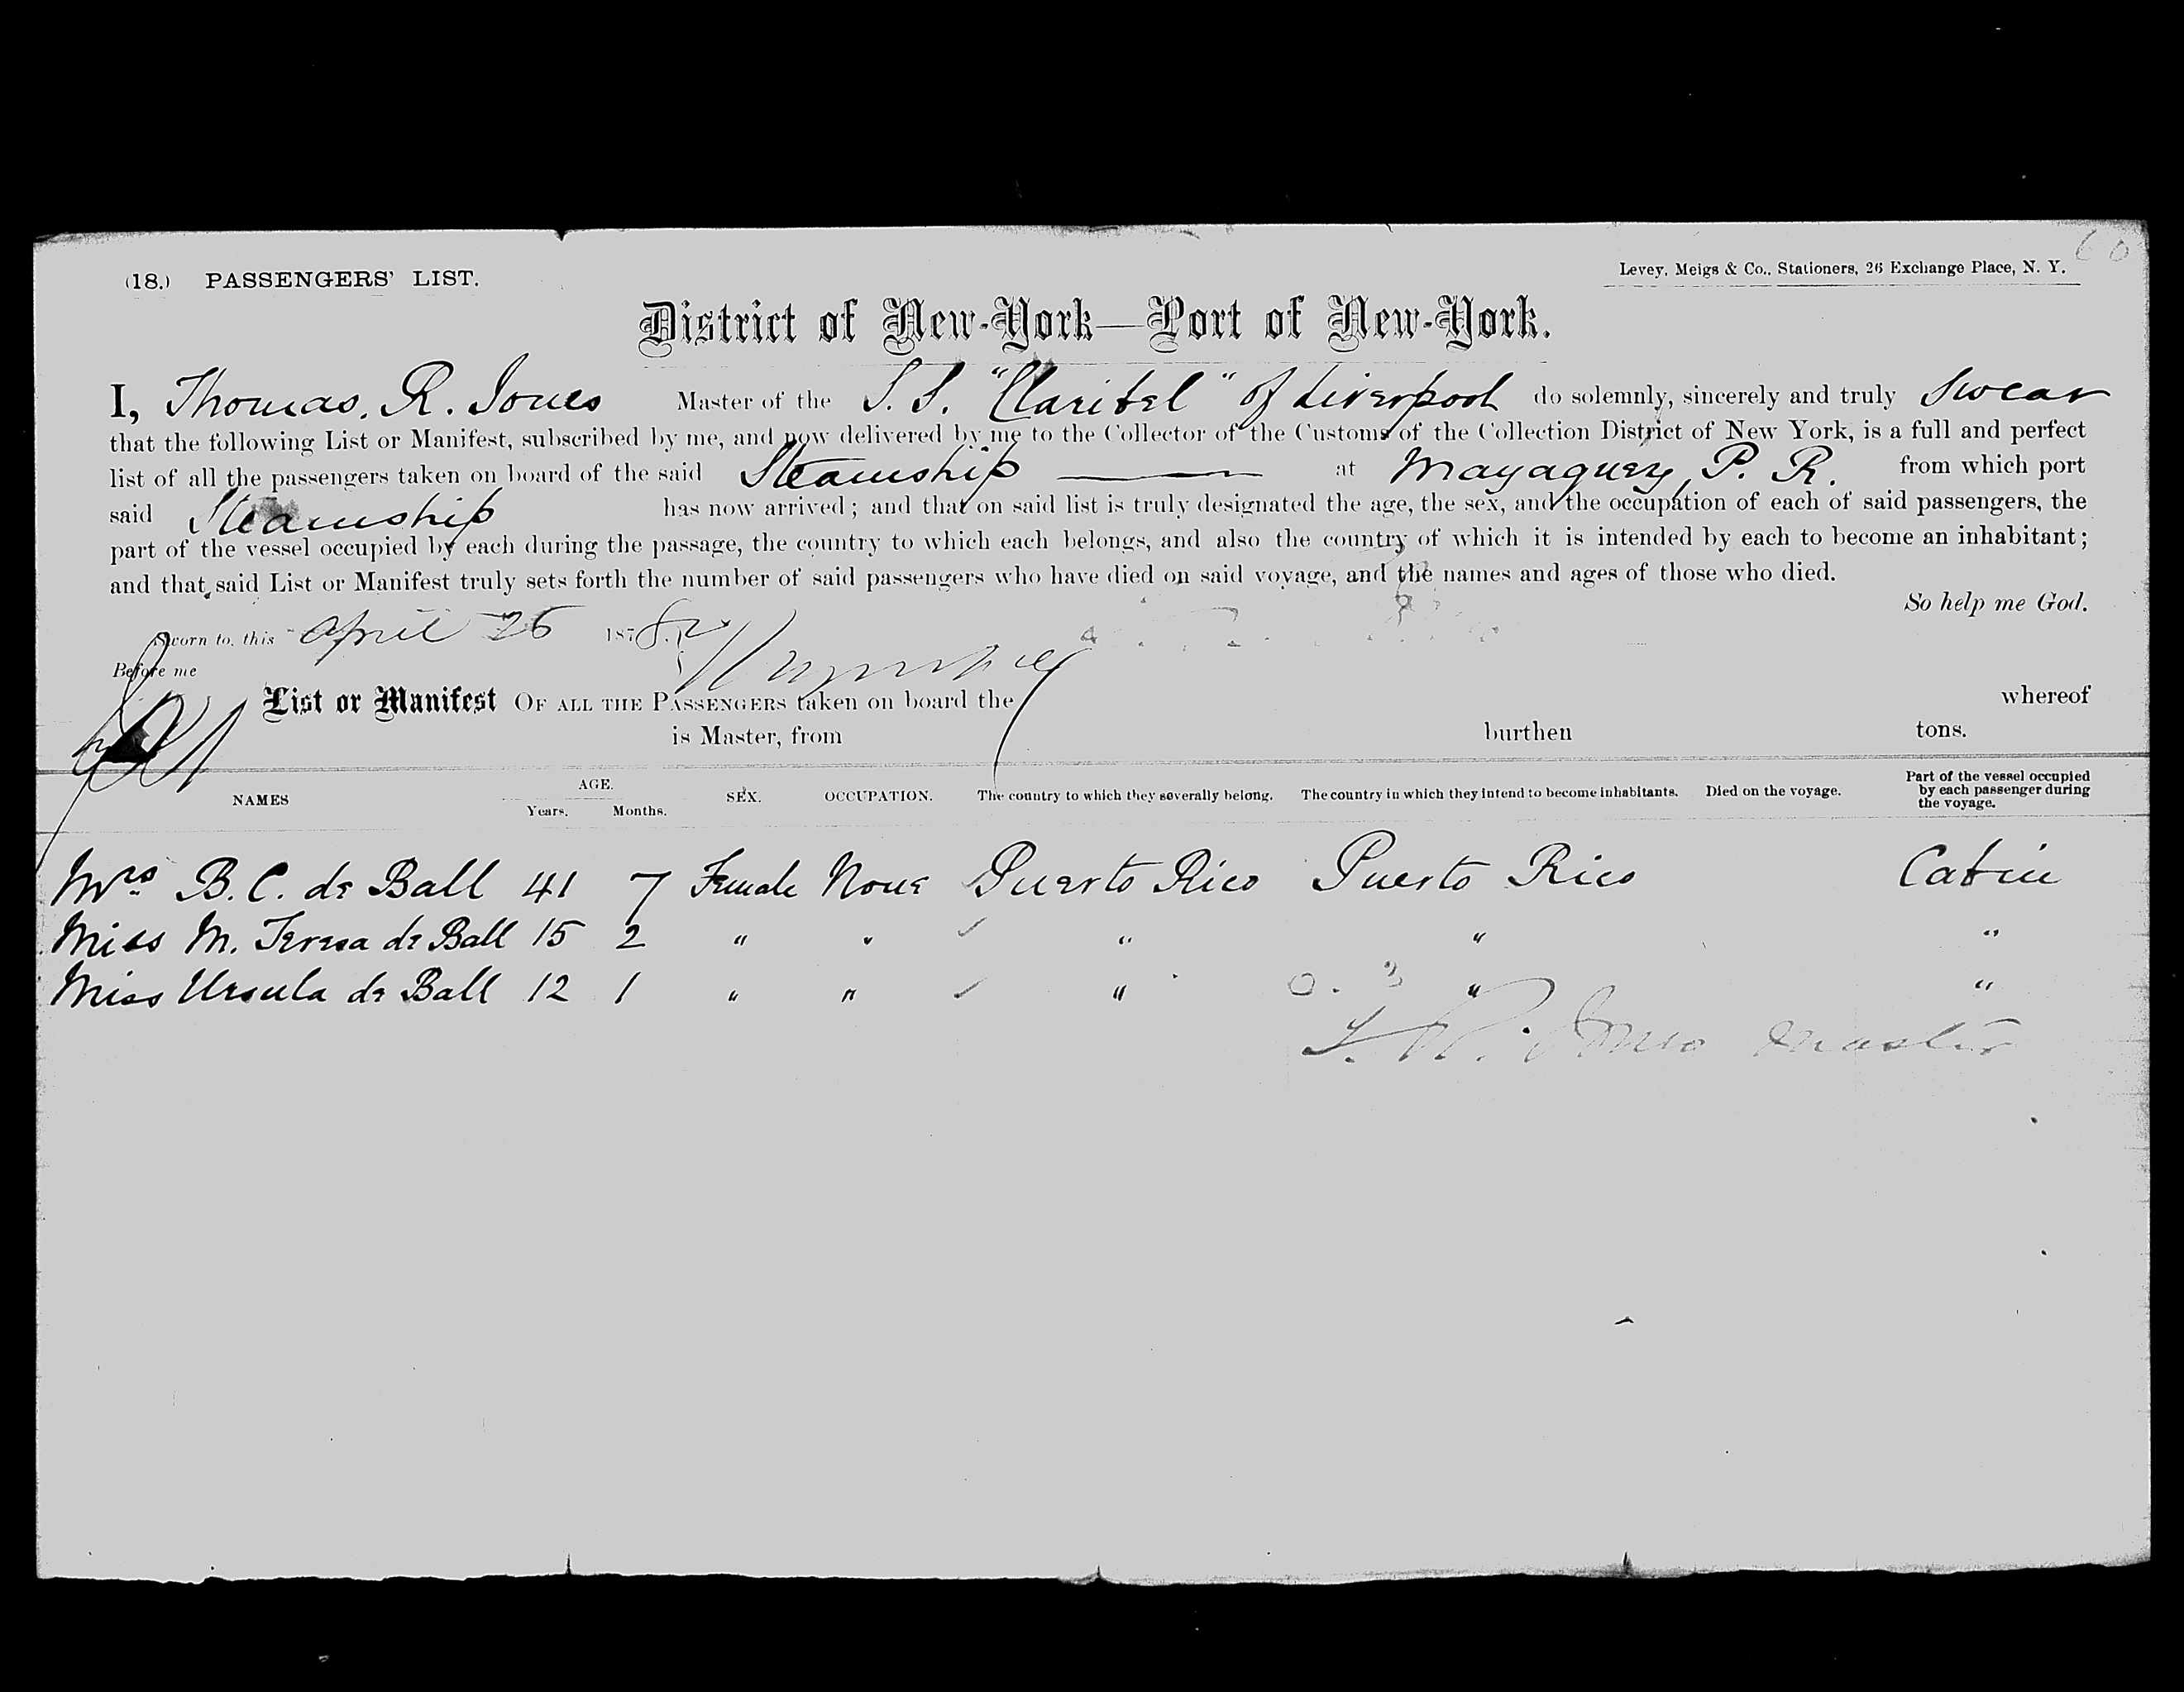 60
(18.) PASSENGERS' LIST. Levey, Meigs & Co., Stationers, 26 Exchange Place, N. Y.
District of New-York—Port of New-York.
I, Thomas. R. Jones Master of the S. S. "Claribel" of Liverpool do solemnly, sincerely and truly Swear
that the following List or Manifest, subscribed by me, and now delivered by me to the Collector of the Customs of the Collection District of New York, is a full and perfect
list of all the passengers taken on board of the said Steamship — at Mayaguez, P. R. from which port
said Steamship has now arrived; and that on said list is truly designated the age, the sex, and the occupation of each of said passengers, the
part of the vessel occupied by each during the passage, the country to which each belongs, and also the country of which it is intended by each to become an inhabitant;
and that said List or Manifest truly sets forth the number of said passengers who have died on said voyage, and the names and ages of those who died.
So help me God.
Sworn to, this April 26 1878
Before me
List or Manifest OF ALL THE PASSENGERS taken on board the whereof
is Master, from burthen tons.
NAMES AGE. Years. Months. SEX. OCCUPATION. The country to which they severally belong. The country in which they intend to become inhabitants. Died on the voyage. Part of the vessel occupied by each passenger during the voyage.
Mrs B. C. de Ball 41 7 Female None Puerto Rico Puerto Rico Cabin
Miss M. Teresa de Ball 15 2 " " " " "
Miss Ursula de Ball 12 1 " " " " "
T. R. Jones Master